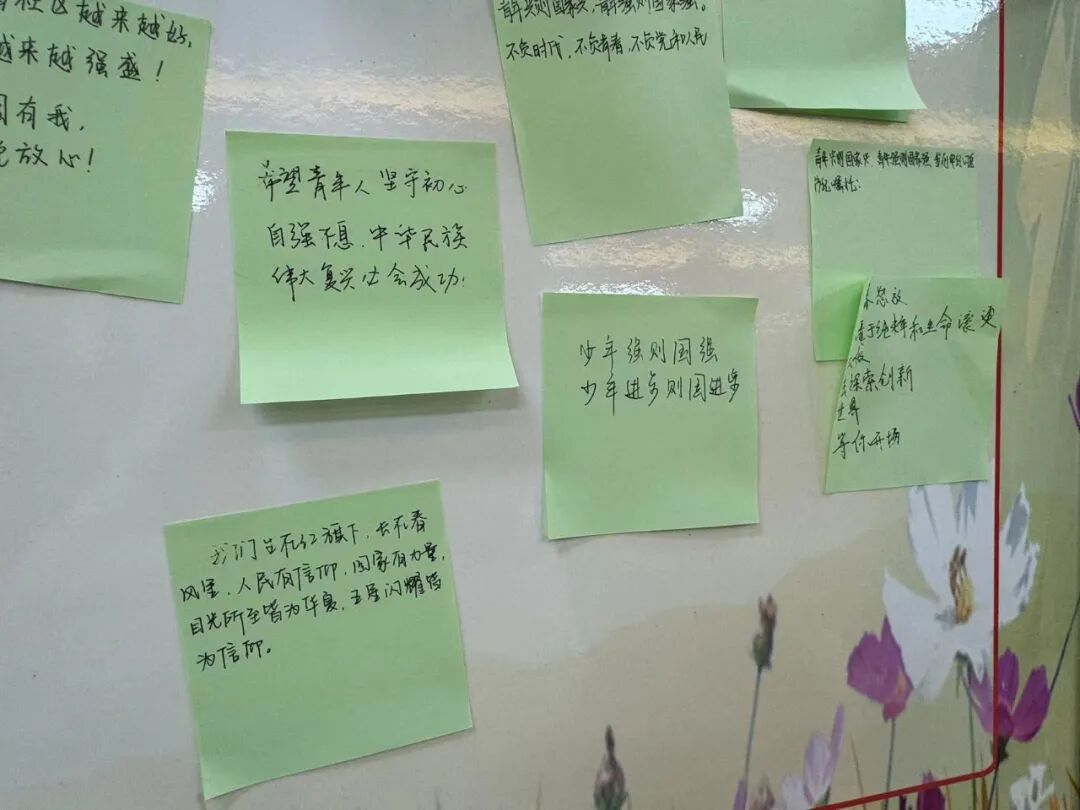 社区越来越好,
越来越强盛!
国有我,
放心!
青年兴则国家兴,青年强则国家强。
不负时代,不负青春,不负党和人民
希望青年人坚守初心
自强不息.中华民族
伟大复兴必会成功.
少年强则国强
少年进步则国进步
青年兴则国家兴 青年强则国家强
和生命滚烫
探索创新
世界
等你开场
我们立在红旗下,去不看
风里,人民有信仰,国家有力量,
目光所至皆为华夏,五星闪耀皆
为信仰。